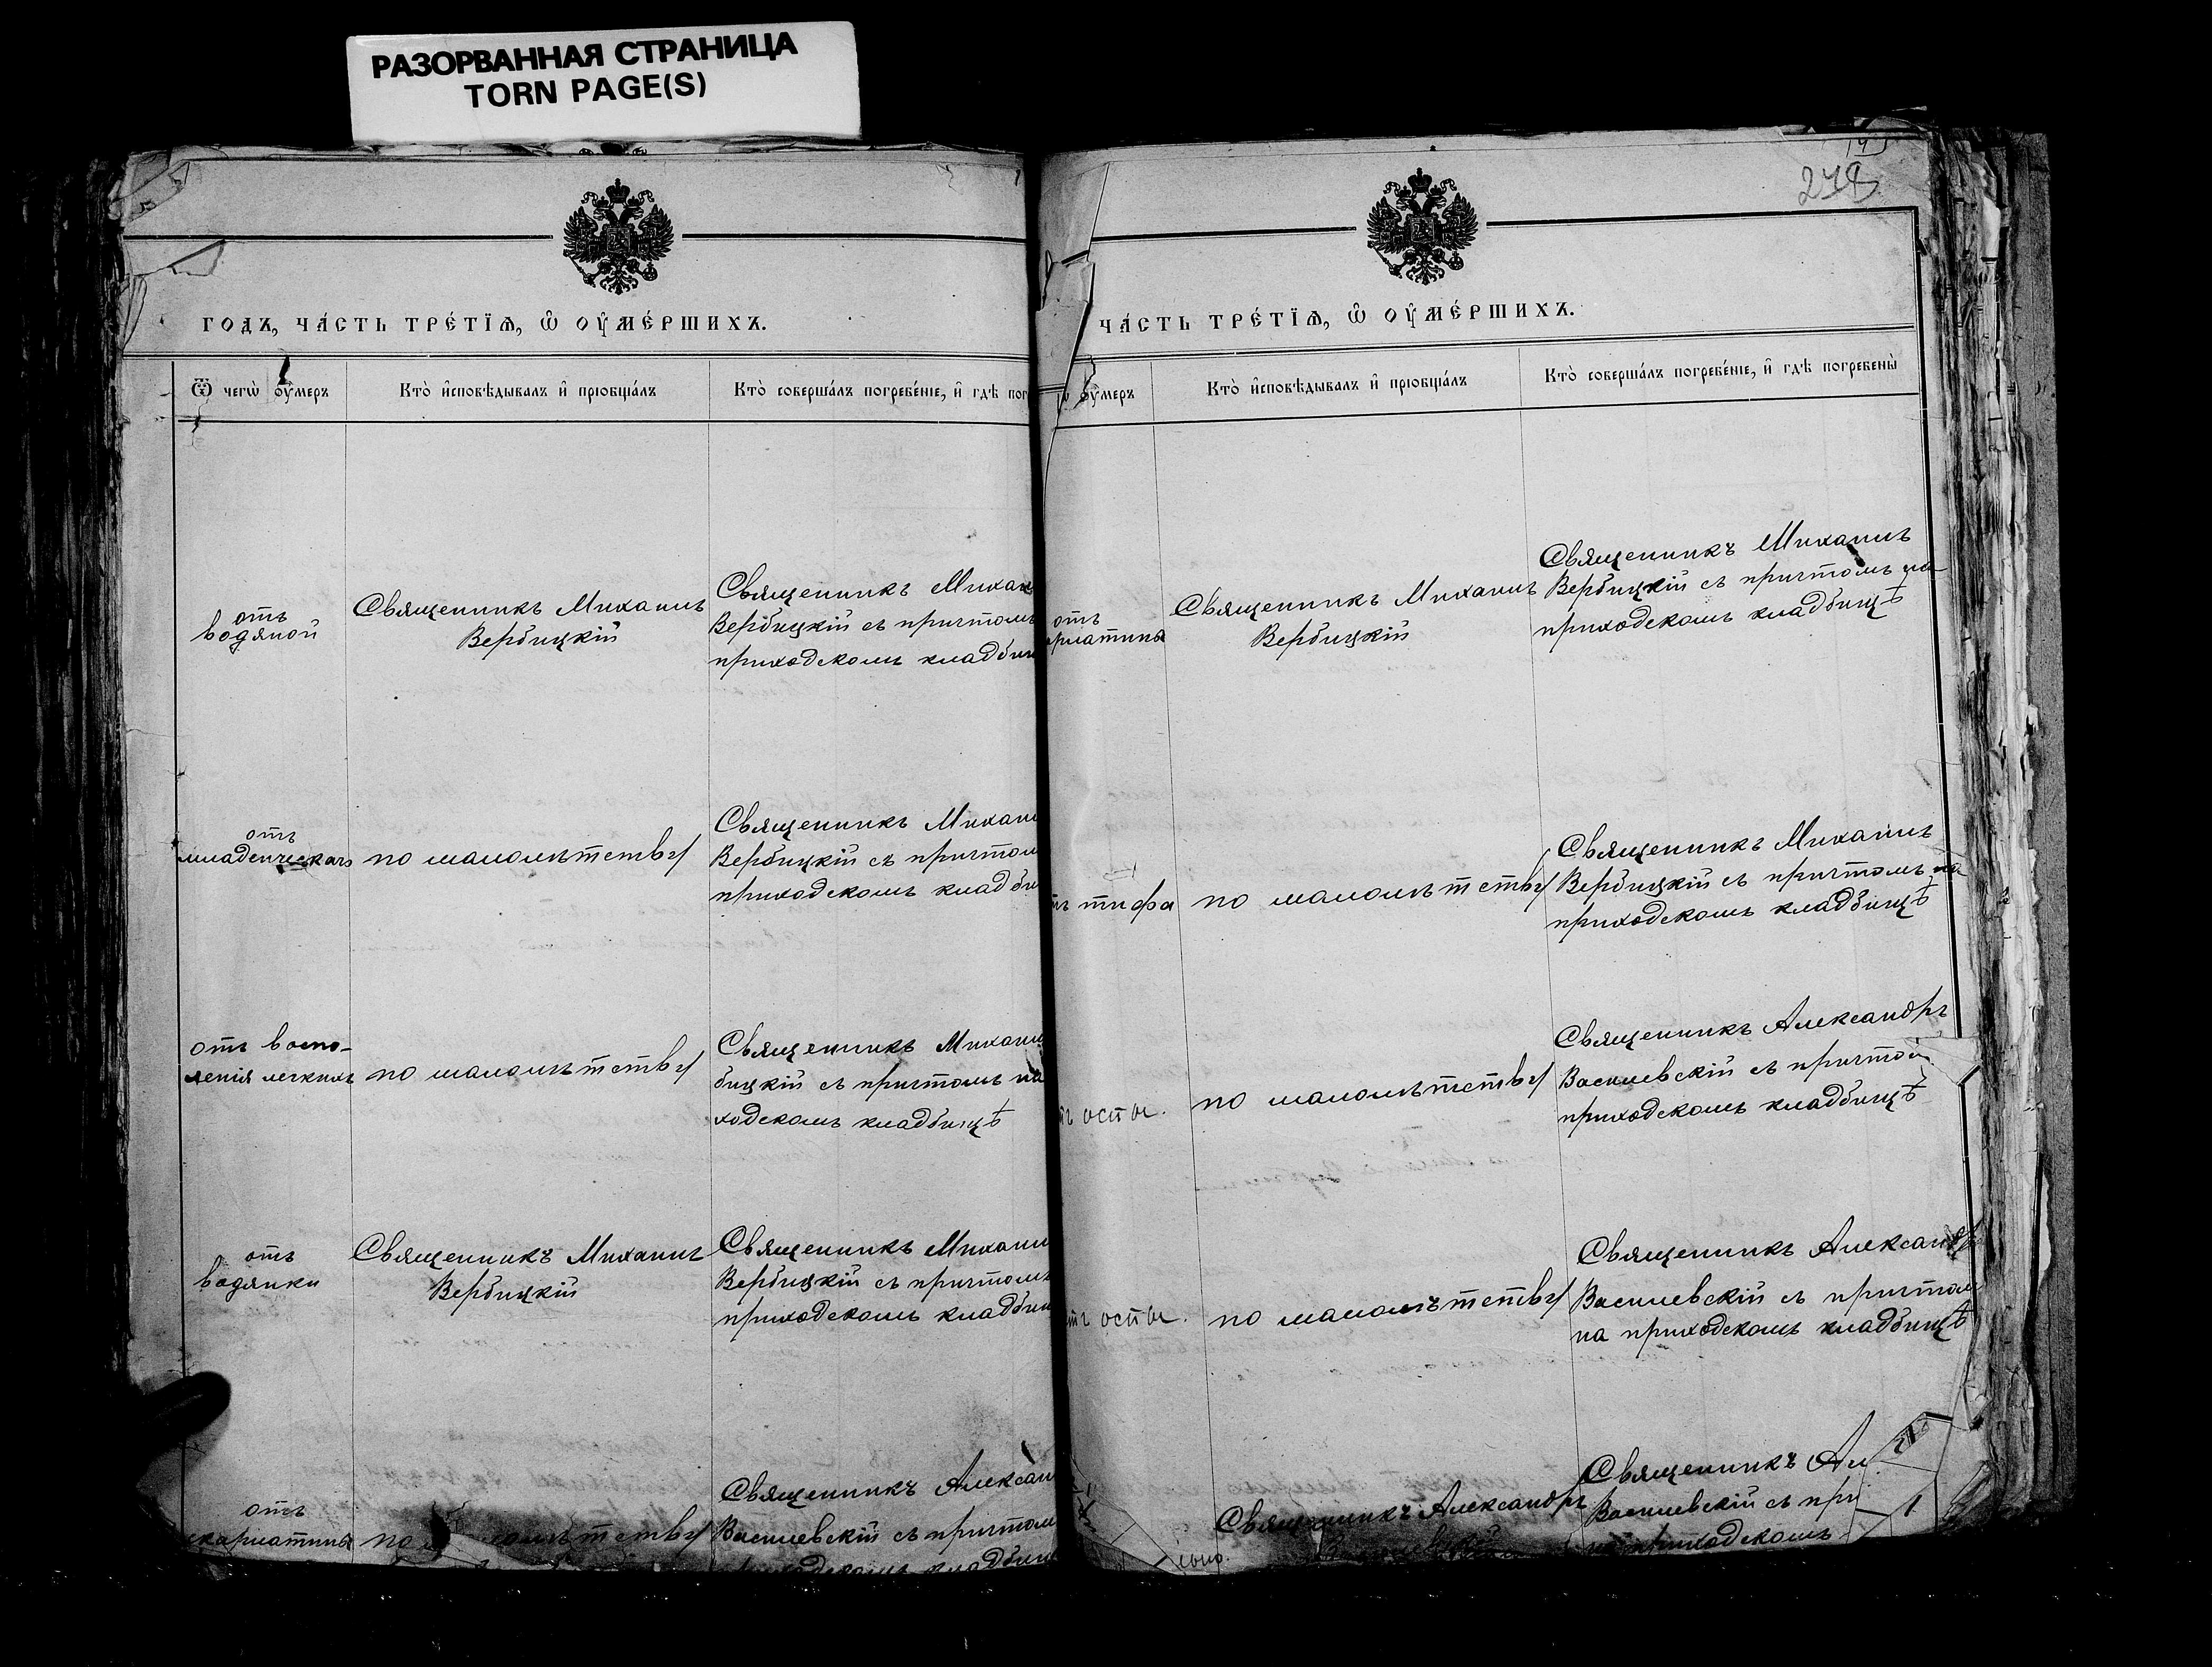 РАЗОРВАННАЯ СТРАНИЦА
TORN PAGE(S)
годъ, ча́сть тре́тїѧ, ѡ҆ оу҆ме́ршихъ.
Ѿ чегѡ̀ оу҆́меръ
Кто̀ и҆сповѣ́дывалъ и҆ прїобща́лъ
Кто̀ соверша́лъ погребе́нїе, и҆ гдѣ̀ пог
отъ
водяной
Священникъ Михаилъ
Вербицкій
Священникъ Михаи
Вербицкій съ причтомъ
приходскомъ кладбищ
отъ
младенческаго
по малолѣтству
Священникъ Михаи
Вербицкій съ причтом
приходскомъ кладби
отъ воспа-
ленія легкихъ
по малолѣтству
Священникъ Михаи
бицкій съ причтомъ на
ходскомъ кладбищѣ
отъ
водянки
Священникъ Михаилъ
Вербицкій
Священникъ Михаи
Вербицкій съ причтомъ
приходскомъ кладби
отъ
скарлатины
по лолѣтству
Священникъ Алексан
Василевскій съ причтом
кладби
278
ча́сть тре́тїѧ, ѡ҆ оу҆ме́ршихъ.
оу҆́меръ
Кто̀ и҆сповѣ́дывалъ и҆ прїобща́лъ
Кто̀ соверша́лъ погребе́нїе, и҆ гдѣ̀ погребены̀
отъ
рлатины
Священникъ Михаилъ
Вербицкій
Священникъ Михаилъ
Вербицкій съ причтомъ на
приходскомъ кладбищѣ
тъ тифа
по малолѣтству
Священникъ Михаилъ
Вербицкій съ причтомъ на
приходскомъ кладбищѣ
тъ оспы.
по малолѣтству
Священникъ Александръ
Василевскій съ причтом
приходскомъ кладбищѣ
тъ оспы.
по малолѣтству
Священникъ Александръ
Василевскій съ причтом
на приходскомъ кладбищѣ
Священникъ Александръ
Священникъ Ал
Василевскій съ при
на приходскомъ